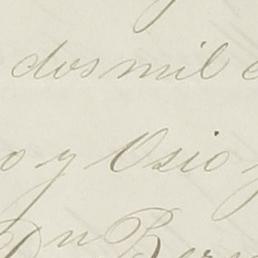 dos mil
o y Osio y
Dn Bern